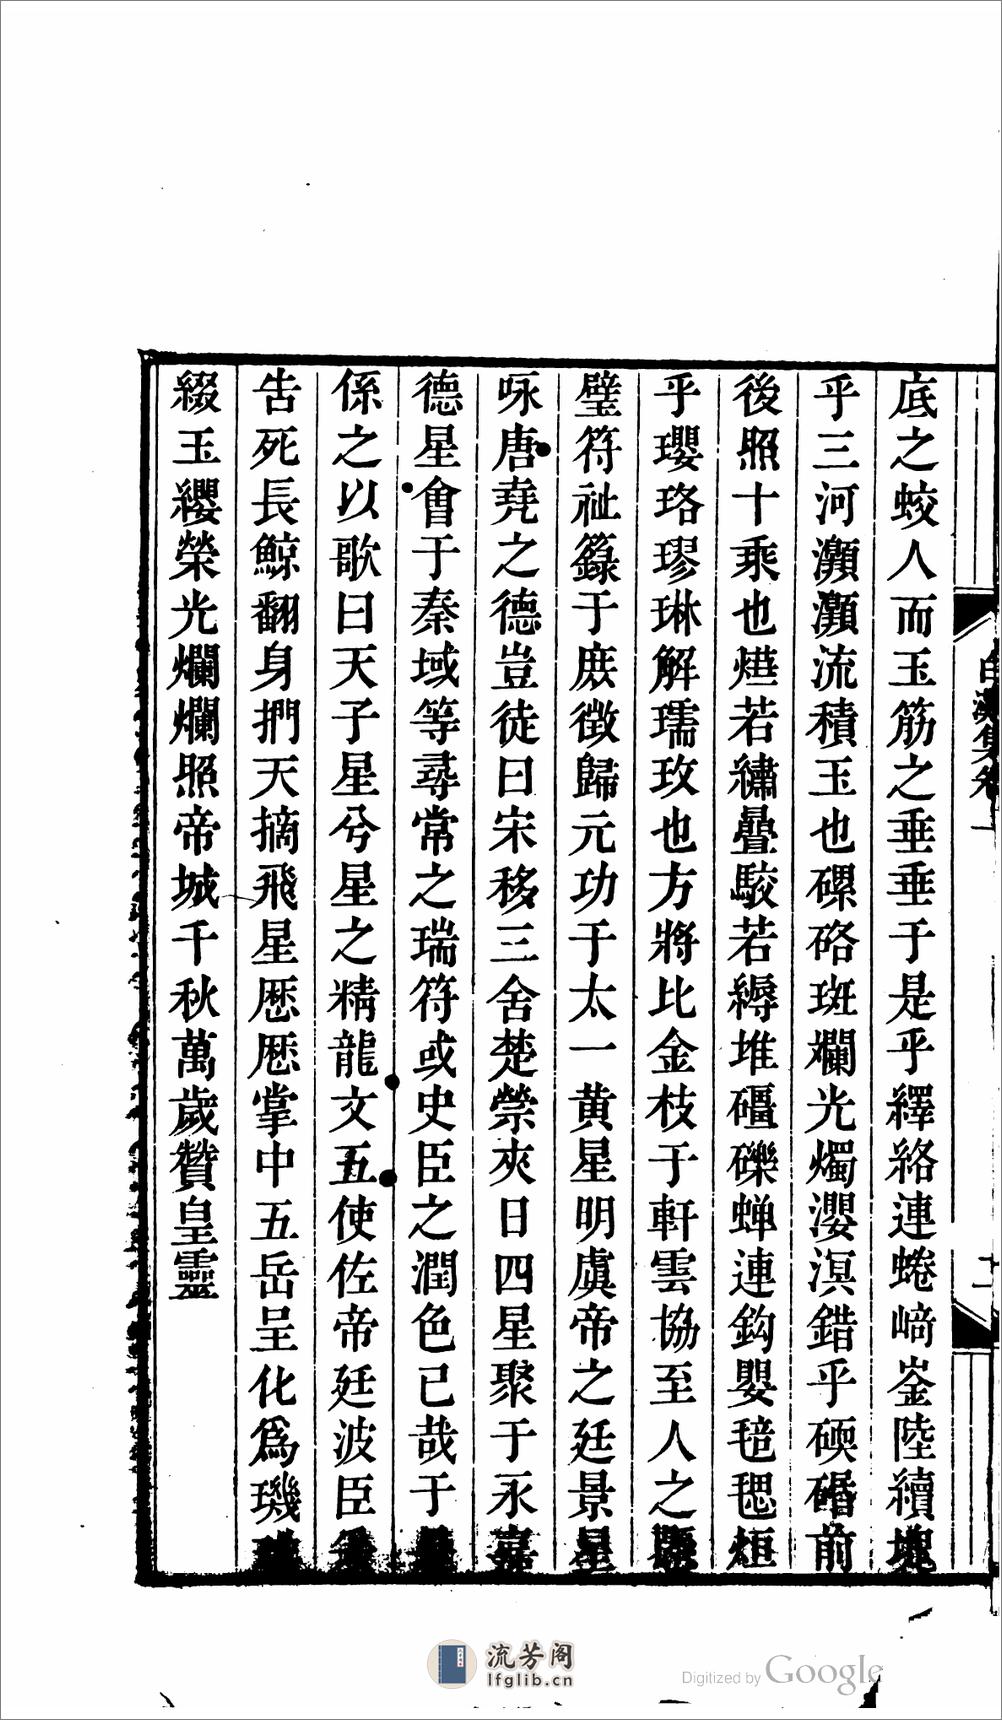 底之蛟人而玉筋之垂垂于是乎繹絡連蜷崎崟陸續塊
乎三河灝灝流積玉也磥硌斑斕光燭瀴溟錯乎碝磻前
後照十乘也爀若繡疊駮若縟堆礓礫蝉連鈎嬰毰毸烜
乎瓔珞璆琳解瓀玫也方將比金枝于軒雲協至人之
璧符祉籙于庶徵歸元功于太一黄星明虞帝之廷景星
咏唐堯之德豈徒曰宋移三舍楚禜夾日四星聚于永嘉
德星會于秦域等尋常之瑞符或史臣之潤色已哉于
係之以歌曰天子星兮星之精龍文五使佐帝廷波臣
告死長鯨翻身捫天摘飛星厯厯掌中五岳呈化爲璣
綴玉纓榮光爛爛照帝城千秋萬歲贊皇靈
集卷一
十一
流芳阁
lfglib.cn
Digitized by Google